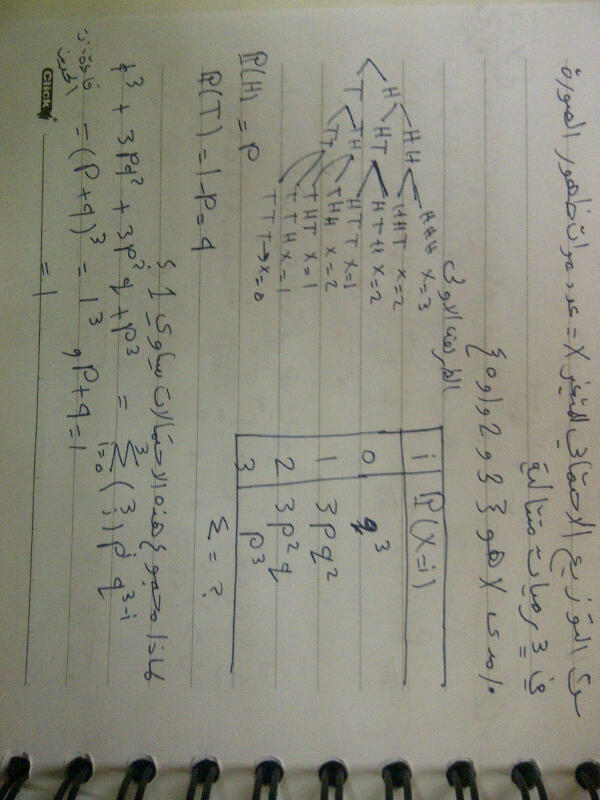 سوى التوزيع الاحتمالي للمتغير X = عدد مرات ظهور الصورة
في 3 رميات متتالية
مدى X هو {0 و 1 و 2 و 3}
الطريقة الاولى
H HH HHH X=3
HHT X=2
HT HTH X=2
HTT X=1
T TH THH X=2
THT X=1
TT TTH X=1
TTT → X=0
P(H) = P
P(T) = 1-P = q
i P(X=i)
0 q³
1 3pq²
2 3p²q
3 p³
Σ = ?
لماذا مجموع هذه الاحتمالات يساوي 1 ؟
q³ + 3Pq² + 3P²q + P³ = Σ³ᵢ₌₀ (³ᵢ) pⁱ q³⁻ⁱ
= (P+q)³ = 1³ , P+q=1
= 1
Click